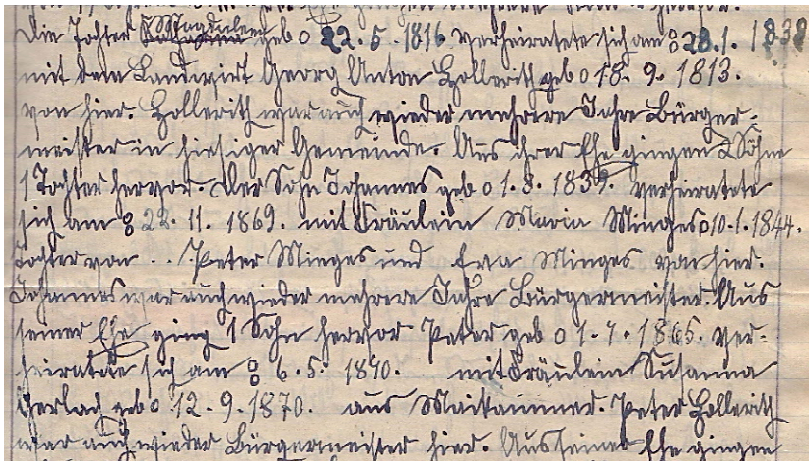 Die Tochter Magdalena geb o 22.5.1816 verheiratete sich am 8 28.1.1838
mit dem Landwirt Georg Anton Hollerith geb o 18.9.1813.
von hier. Hollerith war auch wieder mehrere Jahre Bürger-
meister in hiesiger Gemeinde. Aus ihrer Ehe gingen 2 Söhne
1 Tochter hervor. Der Sohn Johannes geb o 1.3.1839. verheiratete
sich am 8 22.11.1869. mit Fräulein Maria Minges o 10.1.1844.
Tochter von .. Peter Minges und Eva Minges von hier.
Johannes war auch wieder mehrere Jahre Bürgermeister. Aus
seiner Ehe ging 1 Sohn hervor Peter geb o 1.7.1865. ver-
heiratete sich am 8 6.5.1890. mit Fräulein Susanna
Gerlach geb o 12.9.1870. aus Maikammer. Peter Hollerith
war auch wieder Bürgermeister hier. Aus seiner Ehe gingen